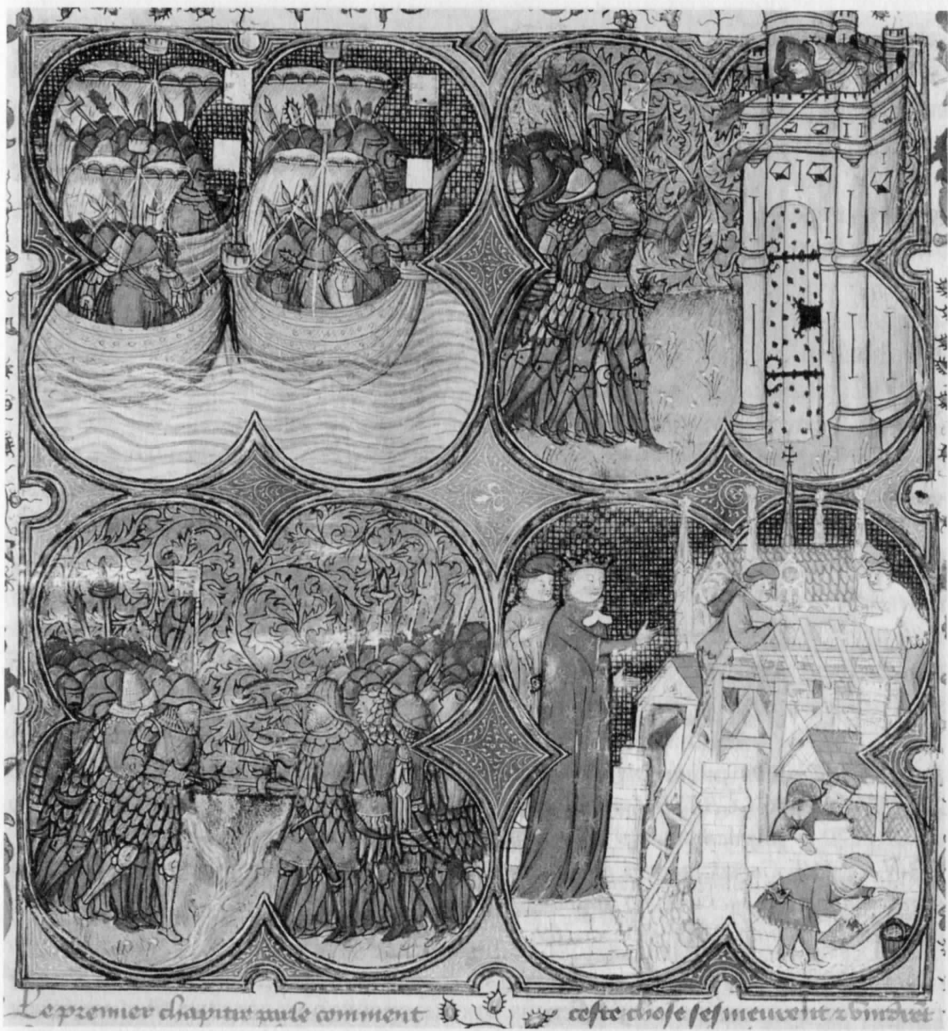 Le premier chapitre parle comment
ceste chose se s meuvent & vindrēt